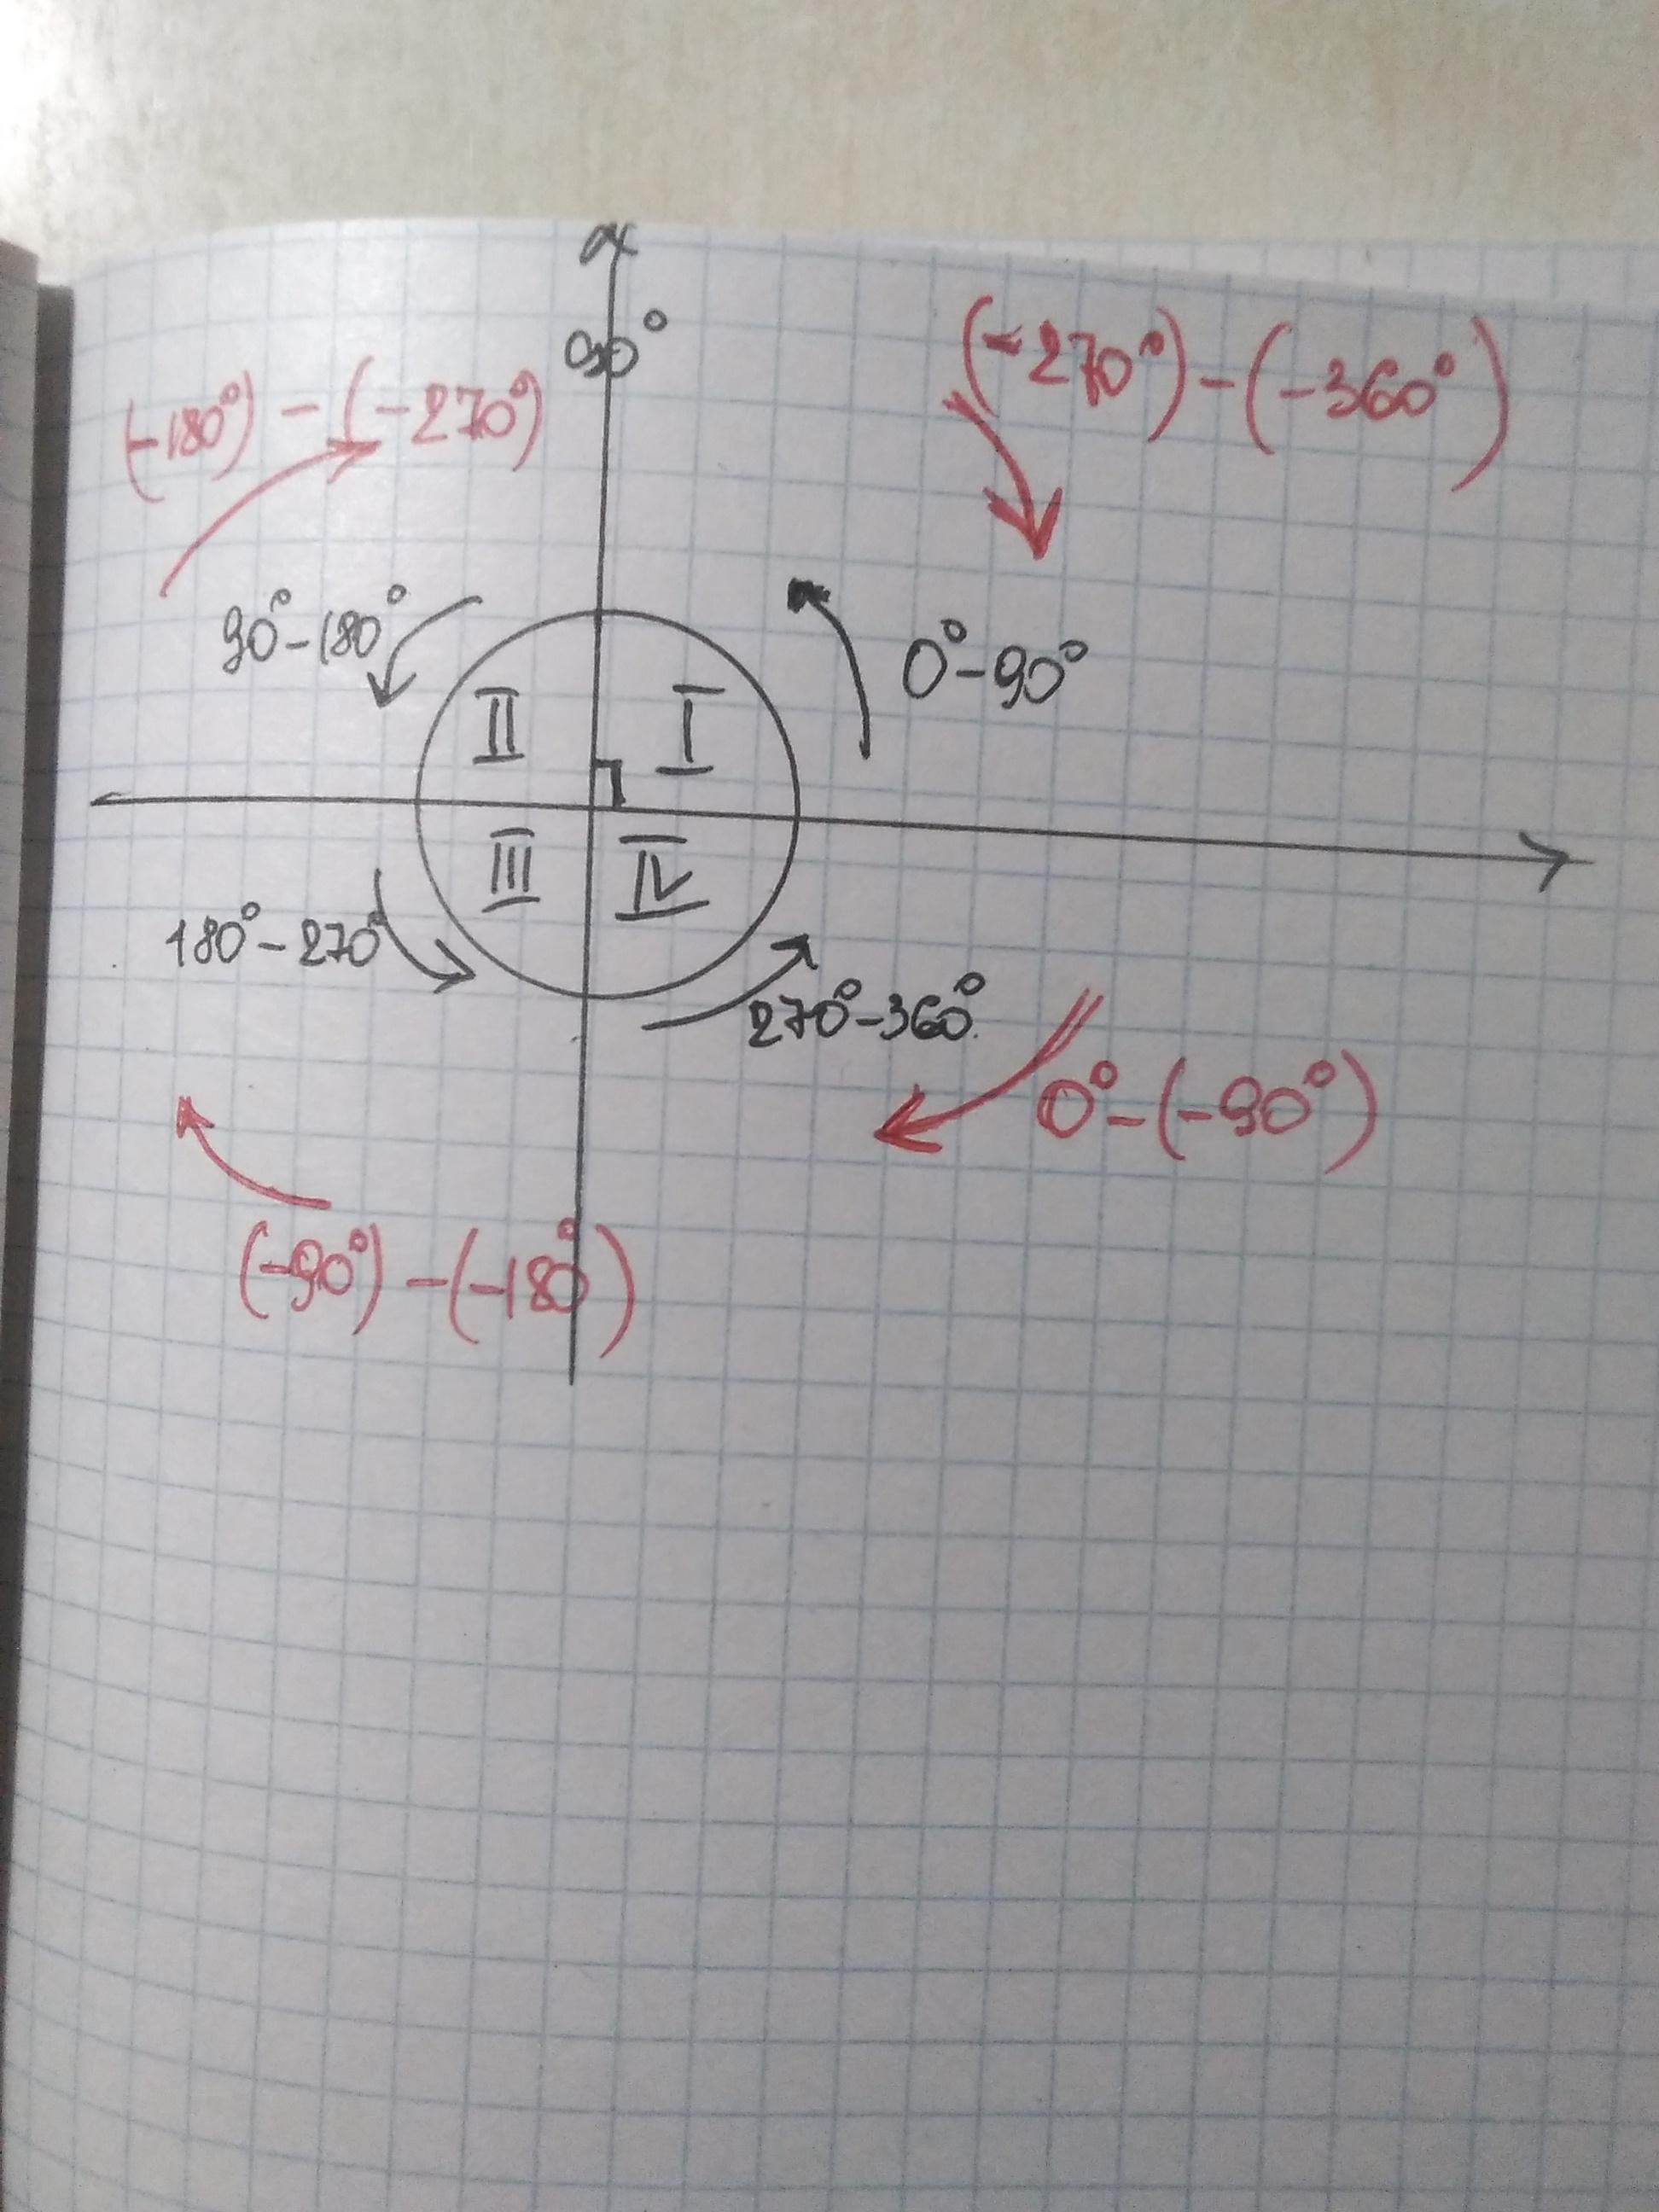 90°
(-270°) - (-360°)
(-180°) - (-270°)
90° - 180°
0° - 90°
II
I
III
IV
180° - 270°
270° - 360°
0° - (-90°)
(-90°) - (-180°)